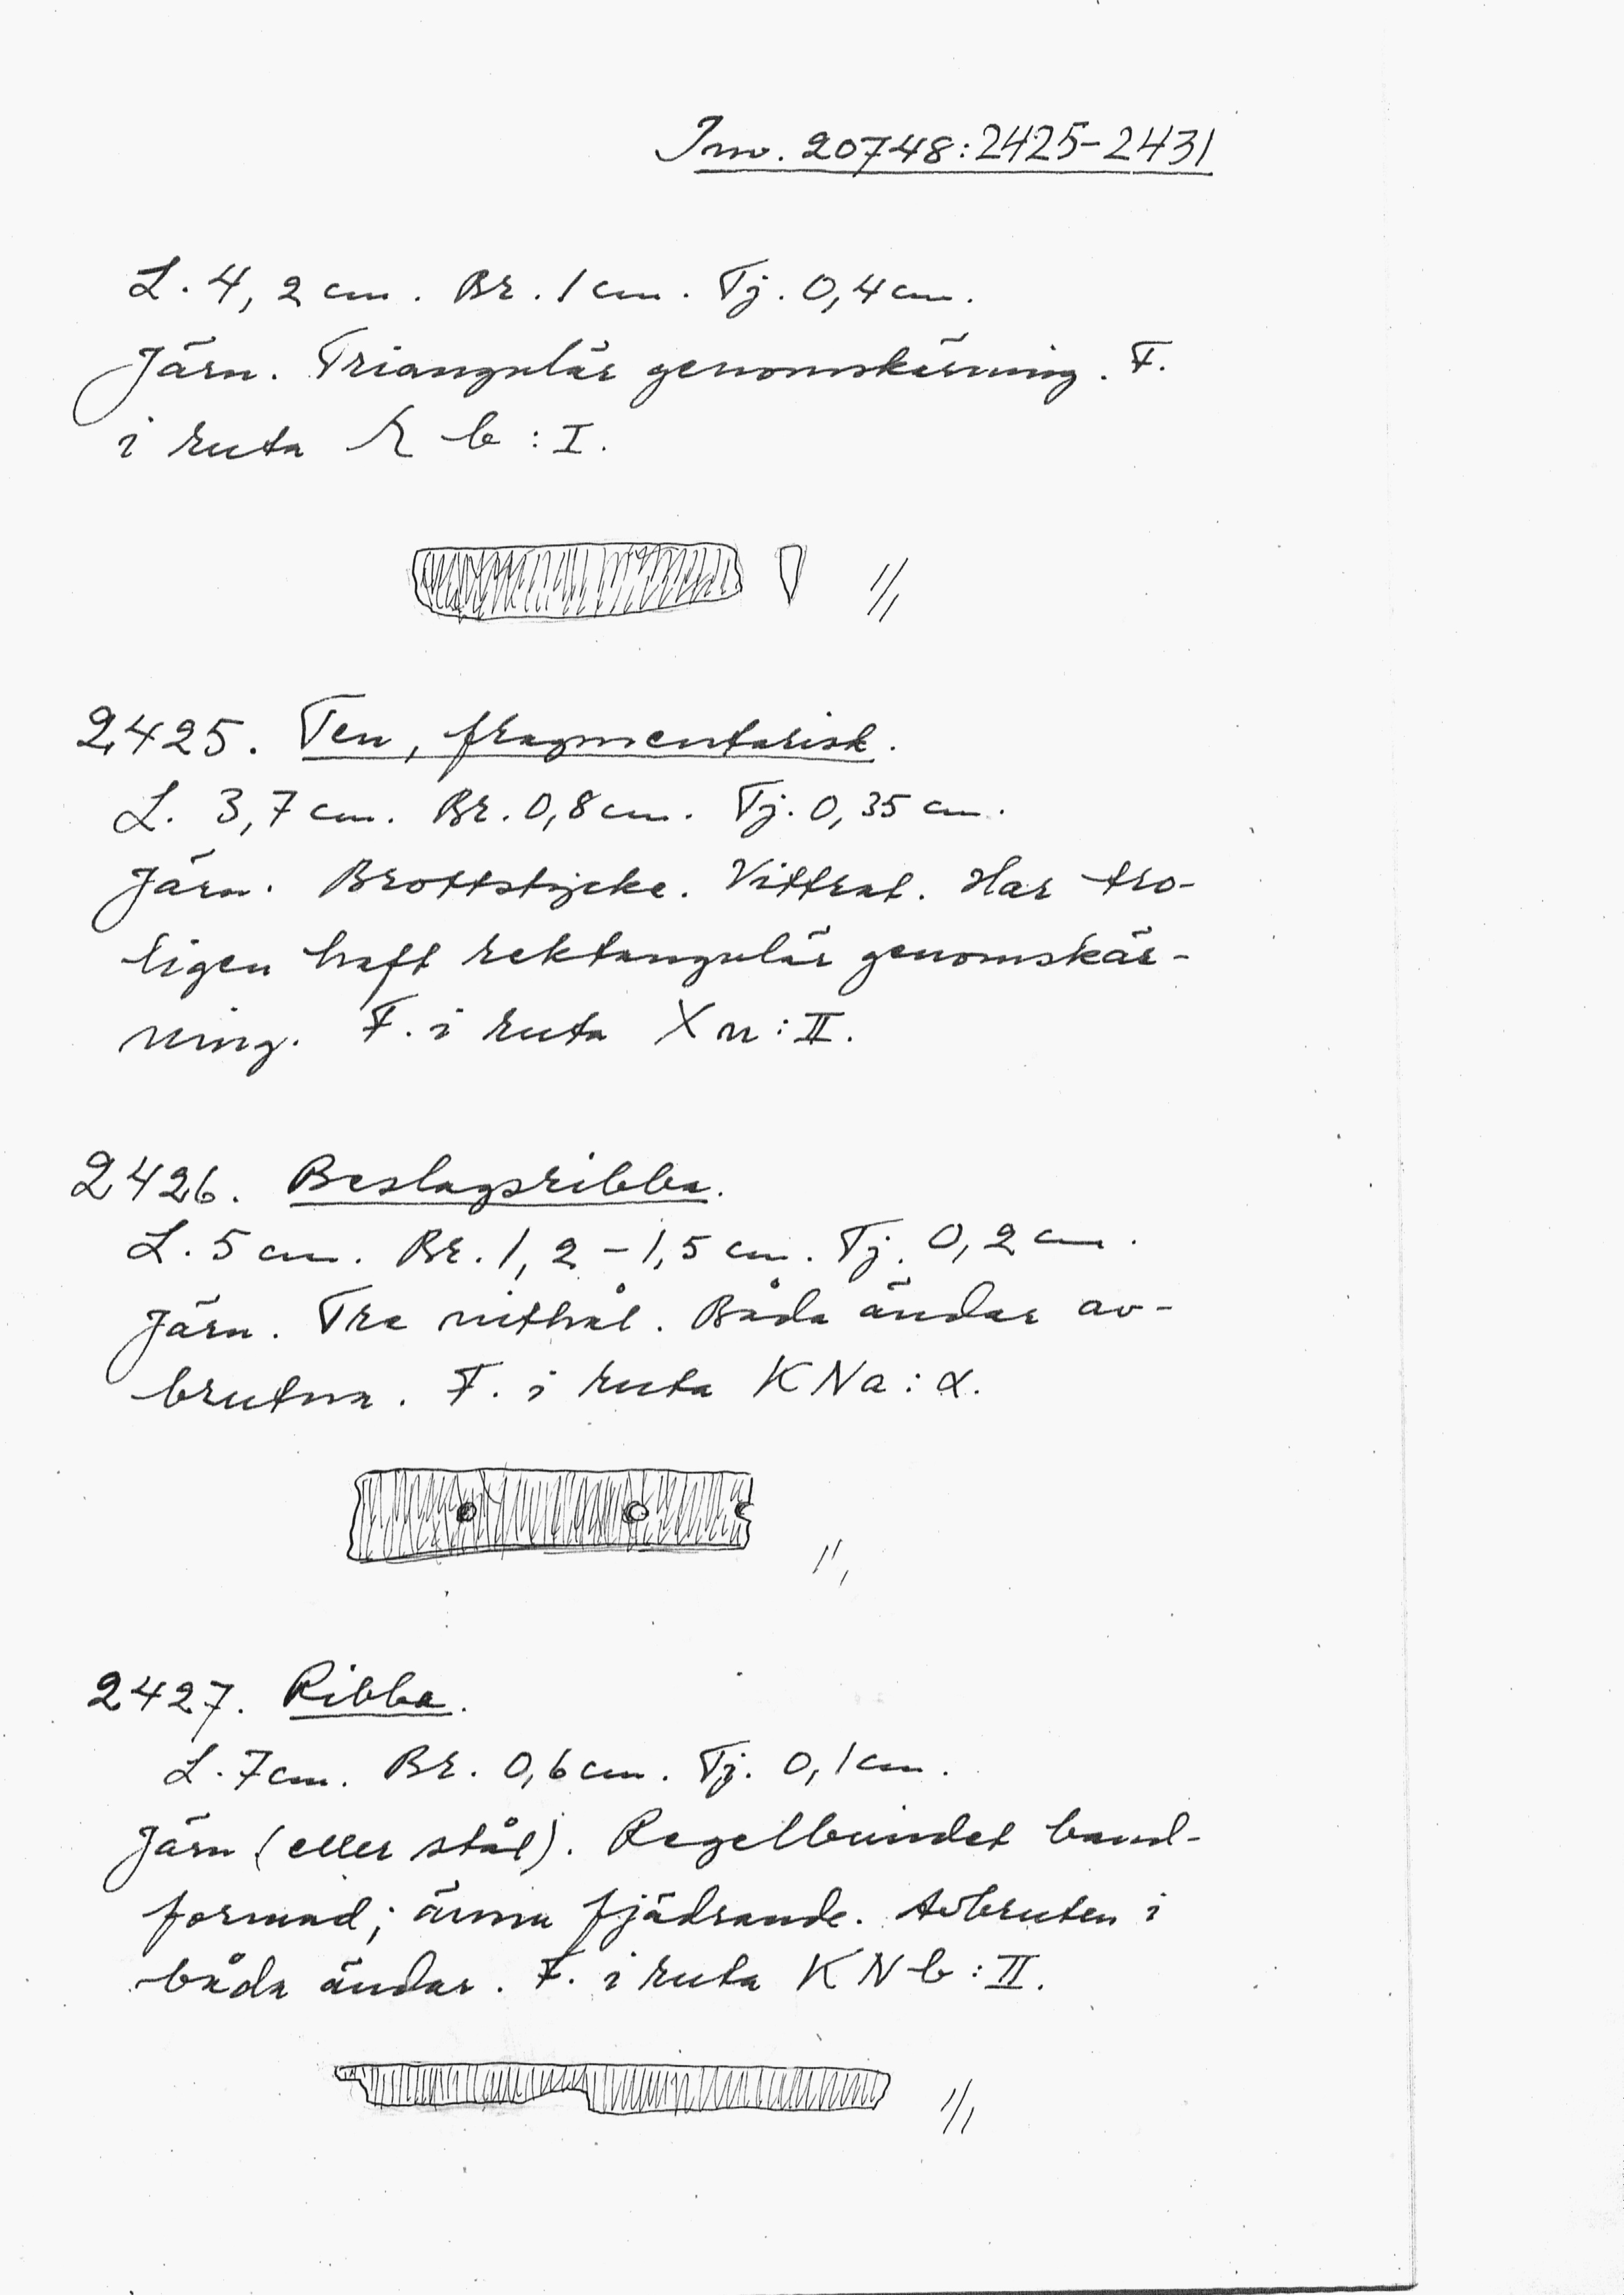 Inv. 20748:2425-2431
L. 4,2 cm. Br. 1 cm. Tj. 0,4 cm.
Järn. Triangulär genomskärning. F.
i ruta b : I.
1/1
2425. Ten, fragmentarisk.
L. 3,7 cm. Br. 0,8 cm. Tj. 0,35 cm.
Järn. Brottstycke. Vittrat. Har tro-
ligen haft rektangulär genomskär-
ning. F. i ruta X n : II.
2426. Beslagsribba.
L. 5 cm. Br. 1,2 - 1,5 cm. Tj. 0,2 cm.
Järn. Tre nithål. Båda ändar av-
brutna. F. i ruta K N a : α.
1/1
2427. Ribba.
L. 7 cm. Br. 0,6 cm. Tj. 0,1 cm.
Järn (eller stål). Regelbundet band-
formad; ännu fjädrande. Avbruten i
båda ändar. F. i ruta K N b : II.
1/1